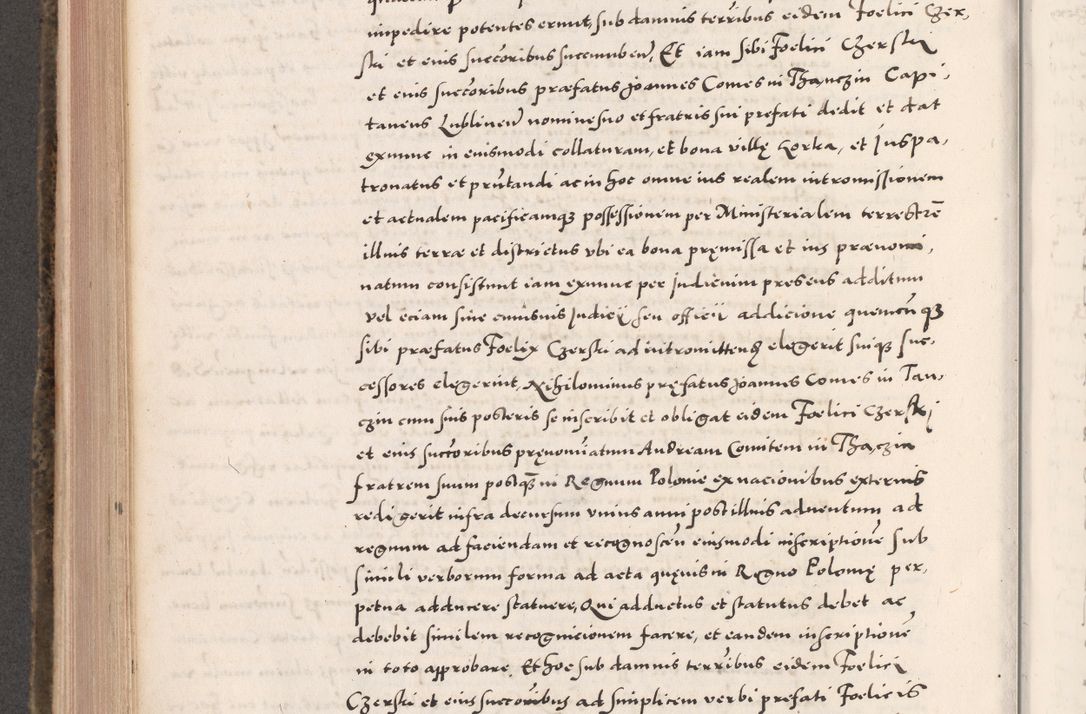 impedire potentes erunt, sub damnis terribus eidem Foelici Czer,
ski et eius succoribus succumben, Et iam sibi Foelici Czerski
et eius succoribus præfatus Joannes Comes in Thanczin Capi,
taneus Lublinen nomine suo et fratris sui prefati dedit et dat
exnunc in eiusmodi collaturam, et bona villę Gorka, et Juspa,
tronatus et prńtandi ac in hoc omne ius realem intromissionem
et actualem pacificamqz possessionem per Ministerialem terrestrē
illius terræ et districtus vbi ea bona pręmissa et ius prænomi,
natum consistunt iam exnunc per Judicium presens additum
vel eciam sine cuiusuis Judicÿ seu officÿ addicione quemcunqz
sibi præfatus Foelix Czerski ad intromittend elegerit suiqz suc,
cessores elegerint, Nihilominus pręfatus Joannes Comes in Tan,
czin cum suis posteris se inscribit et obligat eidem Foelici Czerski
et eius succoribus pręnoiatum Andream Comitem in Thaczin
fratrem suum postqz in Regnum Polonie ex nacionibus externis
redigerit infra decursum vnius anni post illius aduentum ad
regnum ad faciendam et recognoscen eiusmodi inscriptione sub
simili verborum forma ad acta quęuis in Regno Polonię per,
petua adducere statuere, Qui adductus et statutus debet ac
debebit similem recognicionem facere, et eandem inscriptione
in toto approbare, Et hoc sub damnis terribus eidem Foelici
Czerski et eius succoribus ad simplicem verbi prefati Foelicis